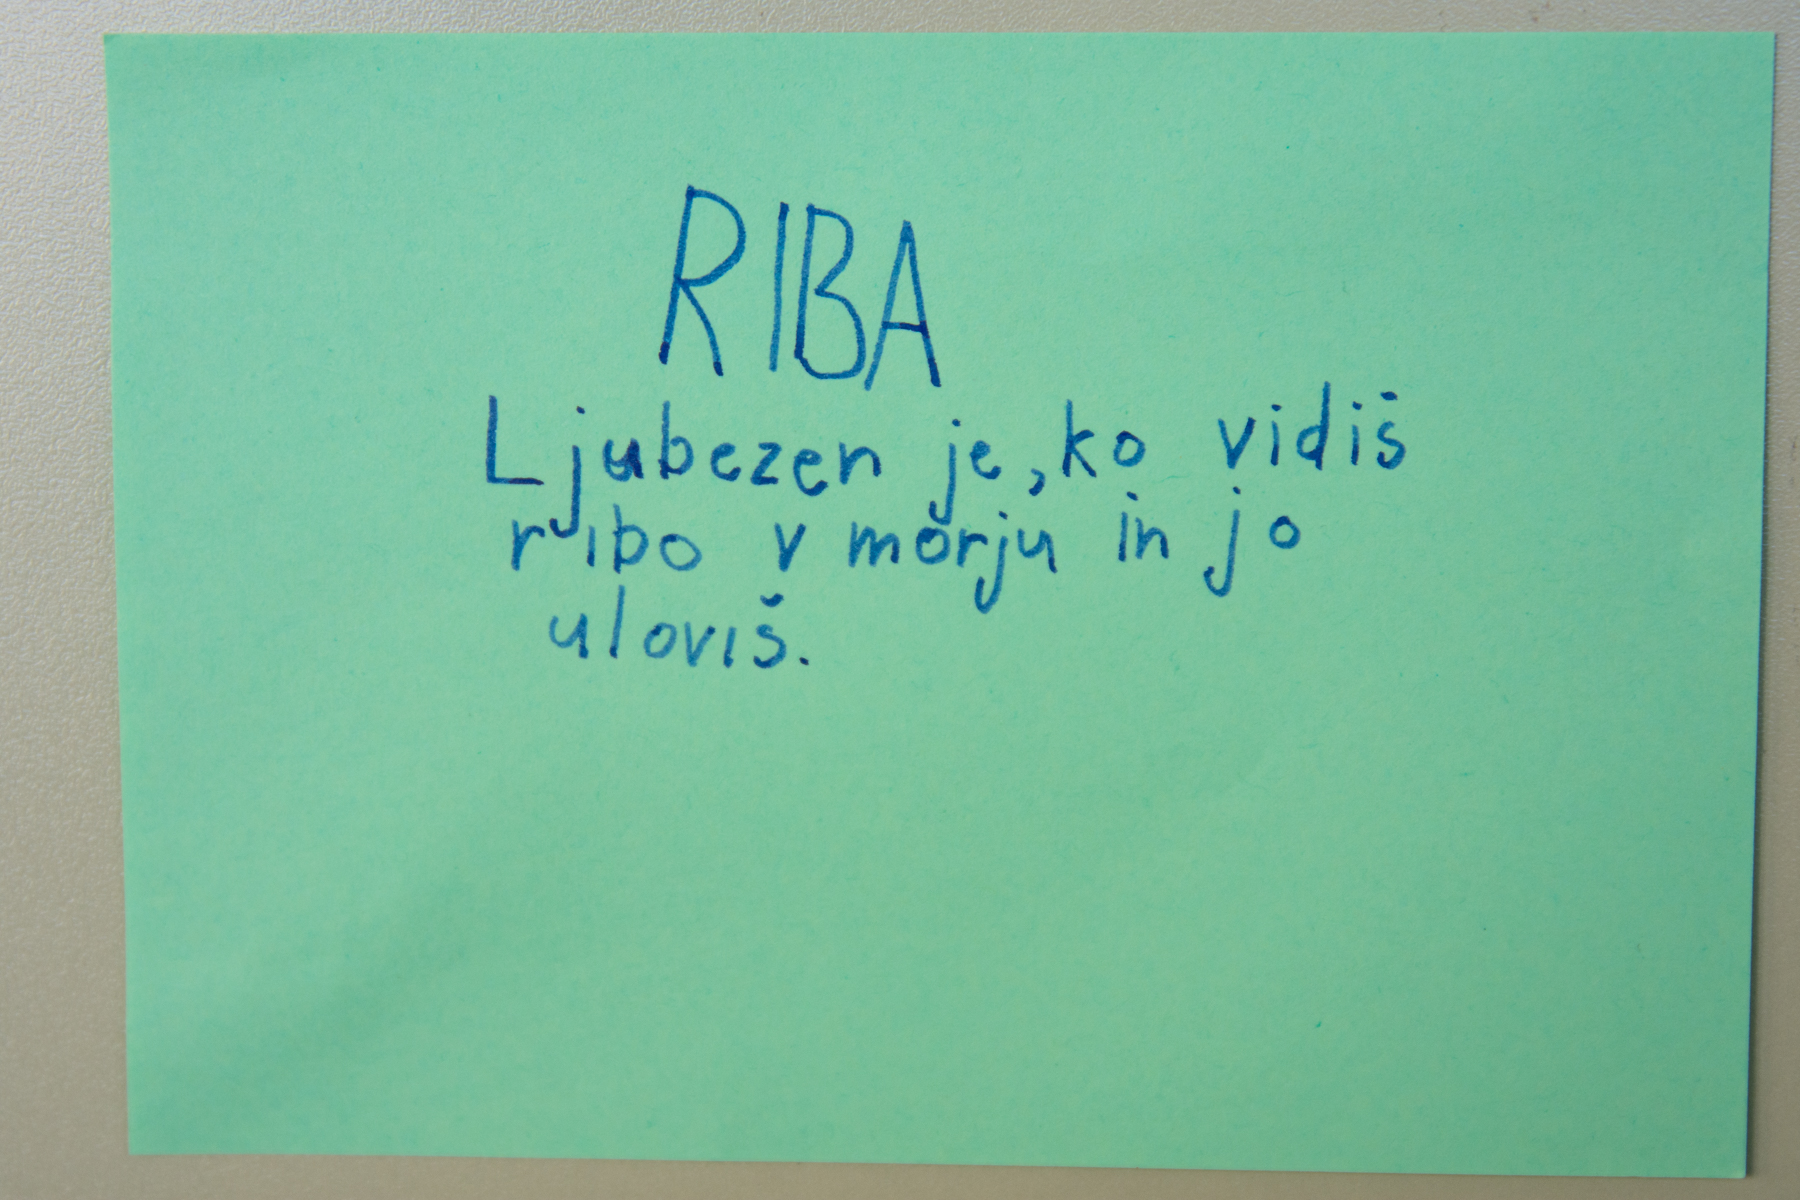 RIBA
Ljubezen je, ko vidiš
ribo v morju in jo
uloviš.